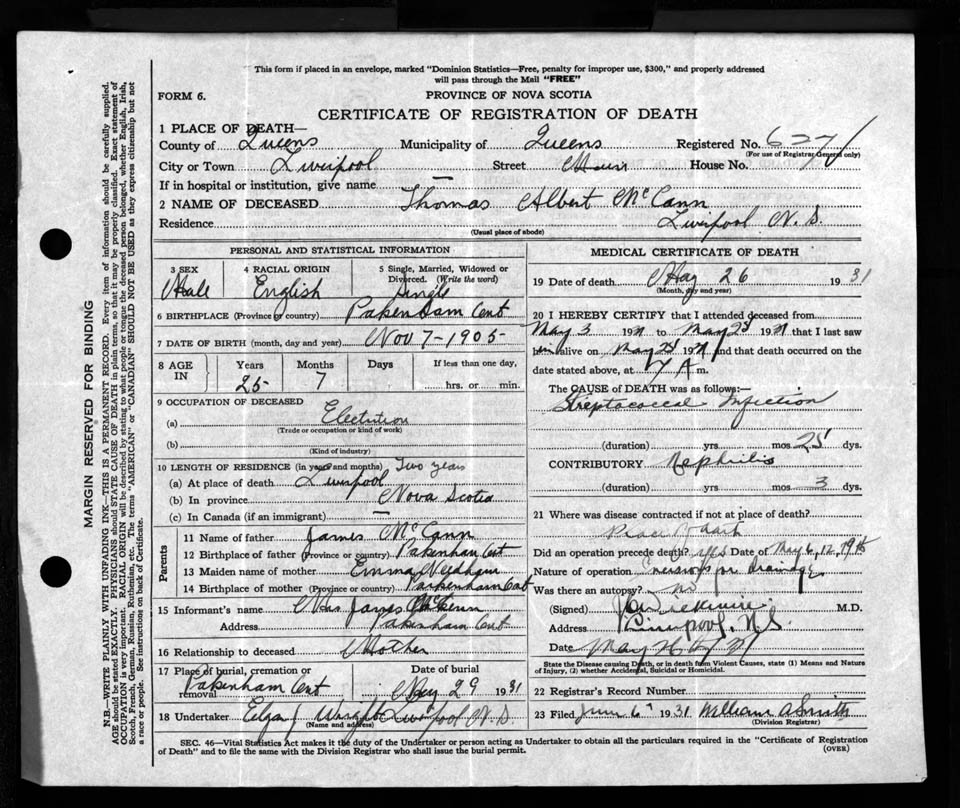 This form if placed in an envelope, marked "Dominion Statistics—Free, penalty for improper use, $300," and properly addressed
will pass through the Mail "FREE"
FORM 6. PROVINCE OF NOVA SCOTIA
CERTIFICATE OF REGISTRATION OF DEATH
1 PLACE OF DEATH—
County of Queens Municipality of Queens Registered No. 627
(For use of Registrar General only)
City or Town Liverpool Street House No.
If in hospital or institution, give name —
2 NAME OF DECEASED Thomas Albert McCann
Residence Liverpool N. S.
(Usual place of abode)
PERSONAL AND STATISTICAL INFORMATION
3 SEX 4 RACIAL ORIGIN 5 Single, Married, Widowed or Divorced. (Write the word)
Male English Single
6 BIRTHPLACE (Province or country) Pakenham Ont
7 DATE OF BIRTH (month, day and year) Nov 7-1905
8 AGE IN Years Months Days If less than one day,
25 7 hrs. or min.
9 OCCUPATION OF DECEASED
(a) Electrician
(Trade or occupation or kind of work)
(b)
(Kind of industry)
10 LENGTH OF RESIDENCE (in years and months) Two years
(a) At place of death Liverpool
(b) In province Nova Scotia
(c) In Canada (if an immigrant) —
Parents
11 Name of father James McCann
12 Birthplace of father (Province or country) Pakenham Ont
13 Maiden name of mother Emma Needham
14 Birthplace of mother (Province or country) Parkenham Ont
15 Informant's name Mrs James McCann
Address Pakenham Ont
16 Relationship to deceased Mother
17 Place of burial, cremation or removal Date of burial
Pakenham Ont May 29 1931
18 Undertaker Wright Liverpool N. S.
(Name and address)
MEDICAL CERTIFICATE OF DEATH
19 Date of death May 26 1931
(Month, day and year)
20 I HEREBY CERTIFY that I attended deceased from
May 3 19 to May 25 19 that I last saw
him alive on May 25 19 and that death occurred on the
date stated above, at 7 A m.
The CAUSE OF DEATH was as follows:—
Streptococcal Infection
(duration) yrs mos 25 dys.
CONTRIBUTORY Nephritis
(duration) yrs mos 3 dys.
21 Where was disease contracted if not at place of death?
Did an operation precede death? yes Date of May 6, 12, 19
Nature of operation Incisions for drainage
Was there an autopsy? no
(Signed) M.D.
Address Liverpool, N.S.
Date May
State the Disease causing Death, or in death from Violent Causes, state (1) Means and Nature
of Injury, (2) whether Accidental, Suicidal or Homicidal.
22 Registrar's Record Number
23 Filed June 6th 1931 William A Smith
(Division Registrar)
SEC. 46—Vital Statistics Act makes it the duty of the Undertaker or person acting as Undertaker to obtain all the particulars required in the "Certificate of Registration
of Death" and to file the same with the Division Registrar who shall issue the burial permit. (OVER)
MARGIN RESERVED FOR BINDING
N.B.—WRITE PLAINLY WITH UNFADING INK—THIS IS A PERMANENT RECORD. Every item of information should be carefully supplied.
AGE should be stated EXACTLY. PHYSICIANS should STATE CAUSE OF DEATH in plain terms, so that it may be properly classified. Exact statement of
OCCUPATION is very important. RACIAL ORIGIN will be described by stating to what people or tongue the deceased person belonged, whether English, Irish,
Scotch, French, German, Russian, Ruthenian, etc. The terms "AMERICAN" or "CANADIAN" SHOULD NOT BE USED as they express citizenship but not
a race or people. See instructions on back of Certificate.